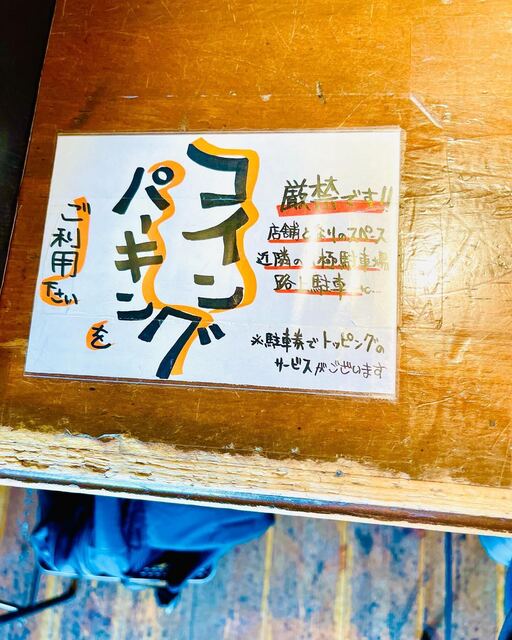 厳禁です!!
店舗となりのスペース
近隣の 極駐車場
路上駐車 etc...
コイン
パーキング
を
ご利用
下さい
※駐車券でトッピングの
サービスがございます